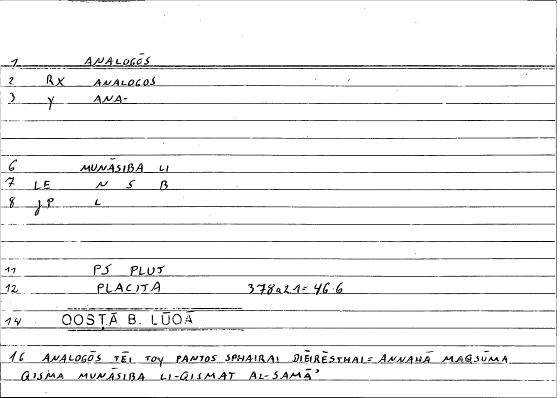 1 ANALOGŌS
2 RX ANALOGOS
3 y ANA-
6 MUNĀSIBA LI
7 LE N S B
8 JP L
11 PS PLUT
12 PLACITA 378a21=46.6
14 QOSṬĀ B. LŪQĀ
16 ANALOGŌS TĒI TOY PANTOS SPHAIRAI DIĒIRĒSTHAI= ANNAHĀ MAQSŪMA
QISMA MUNĀSIBA LI-QISMAT AL-SAMĀʾ